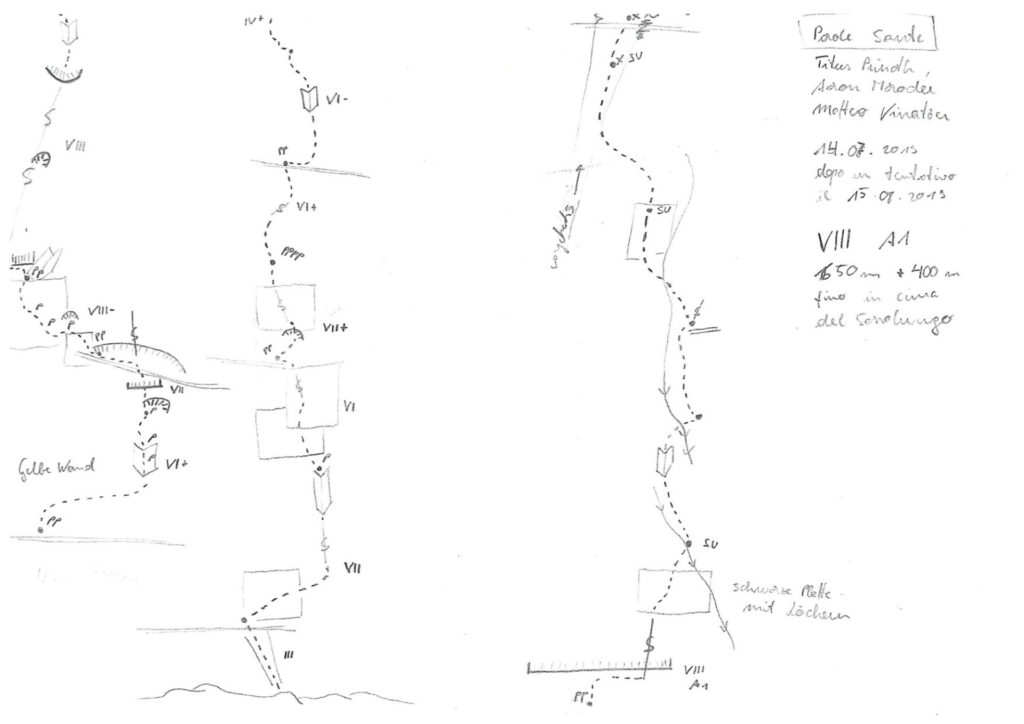 VIII
PP
P
P
P
VIII-
PP
VII
P
P
P
VI+
Gelbe Wand
PP
IV+
VI-
PP
VI+
PPPP
VII+
PP
VI
P
VII
III
SU
SU
SU
schwarze Platte
mit Löchern
VIII
A1
PP
Titus Prinoth,
Aaron Moroder
Matteo Vinatzer
14.07.2013
dopo un tentativo
il 15.08.2013
VIII A1
650 m + 400 m
fino in cima
del Sassolungo